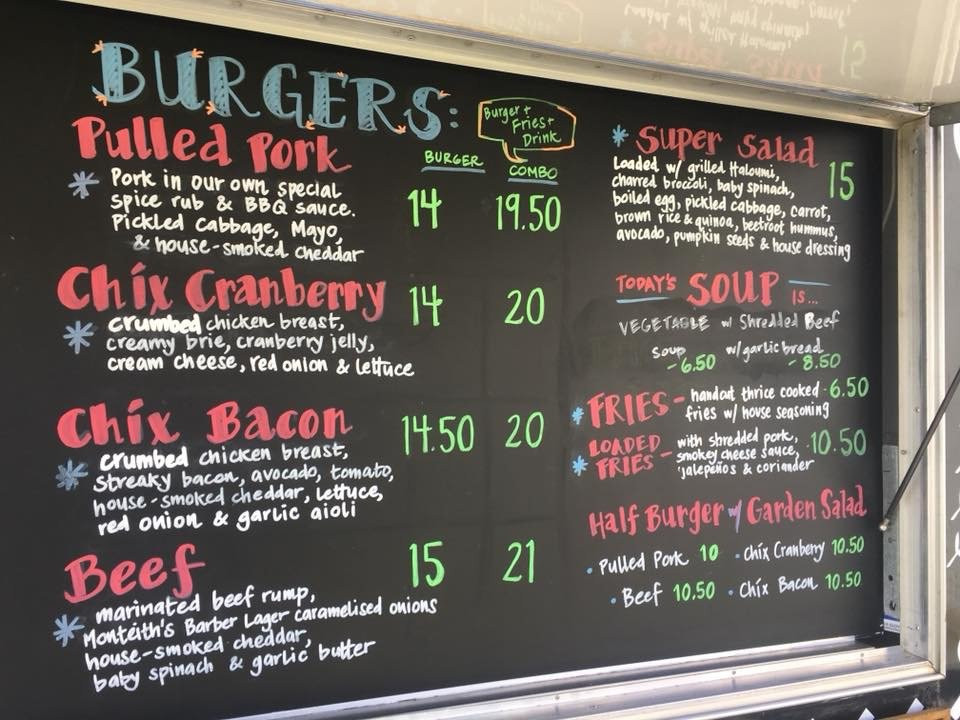 BURGERS:
Burger +
Fries +
Drink
BURGER COMBO
Pulled Pork
* Pork in our own special
spice rub & BBQ sauce.
Pickled Cabbage, Mayo,
& house-smoked cheddar
14 19.50
Chix Cranberry
* crumbed chicken breast,
creamy brie, cranberry jelly,
cream cheese, red onion & lettuce
14 20
Chix Bacon
* crumbed chicken breast,
streaky bacon, avocado, tomato,
house-smoked cheddar, lettuce,
red onion & garlic aioli
14.50 20
Beef
* marinated beef rump,
Monteith's Barber Lager caramelised onions
house-smoked cheddar,
baby spinach & garlic butter
15 21
* Super Salad
Loaded w/ grilled Haloumi,
charred broccoli, baby spinach,
boiled egg, pickled cabbage, carrot,
brown rice & quinoa, beetroot hummus,
avocado, pumpkin seeds & house dressing
15
TODAY'S SOUP IS...
VEGETABLE w Shredded Beef
soup w/ garlic bread
- 6.50 - 8.50
* FRIES - handcut thrice cooked - 6.50
fries w/ house seasoning
* LOADED FRIES - with shredded pork,
smokey cheese sauce, 10.50
jalepeños & coriander
Half Burger w/ Garden Salad
• Pulled Pork 10 • Chix Cranberry 10.50
• Beef 10.50 • Chix Bacon 10.50